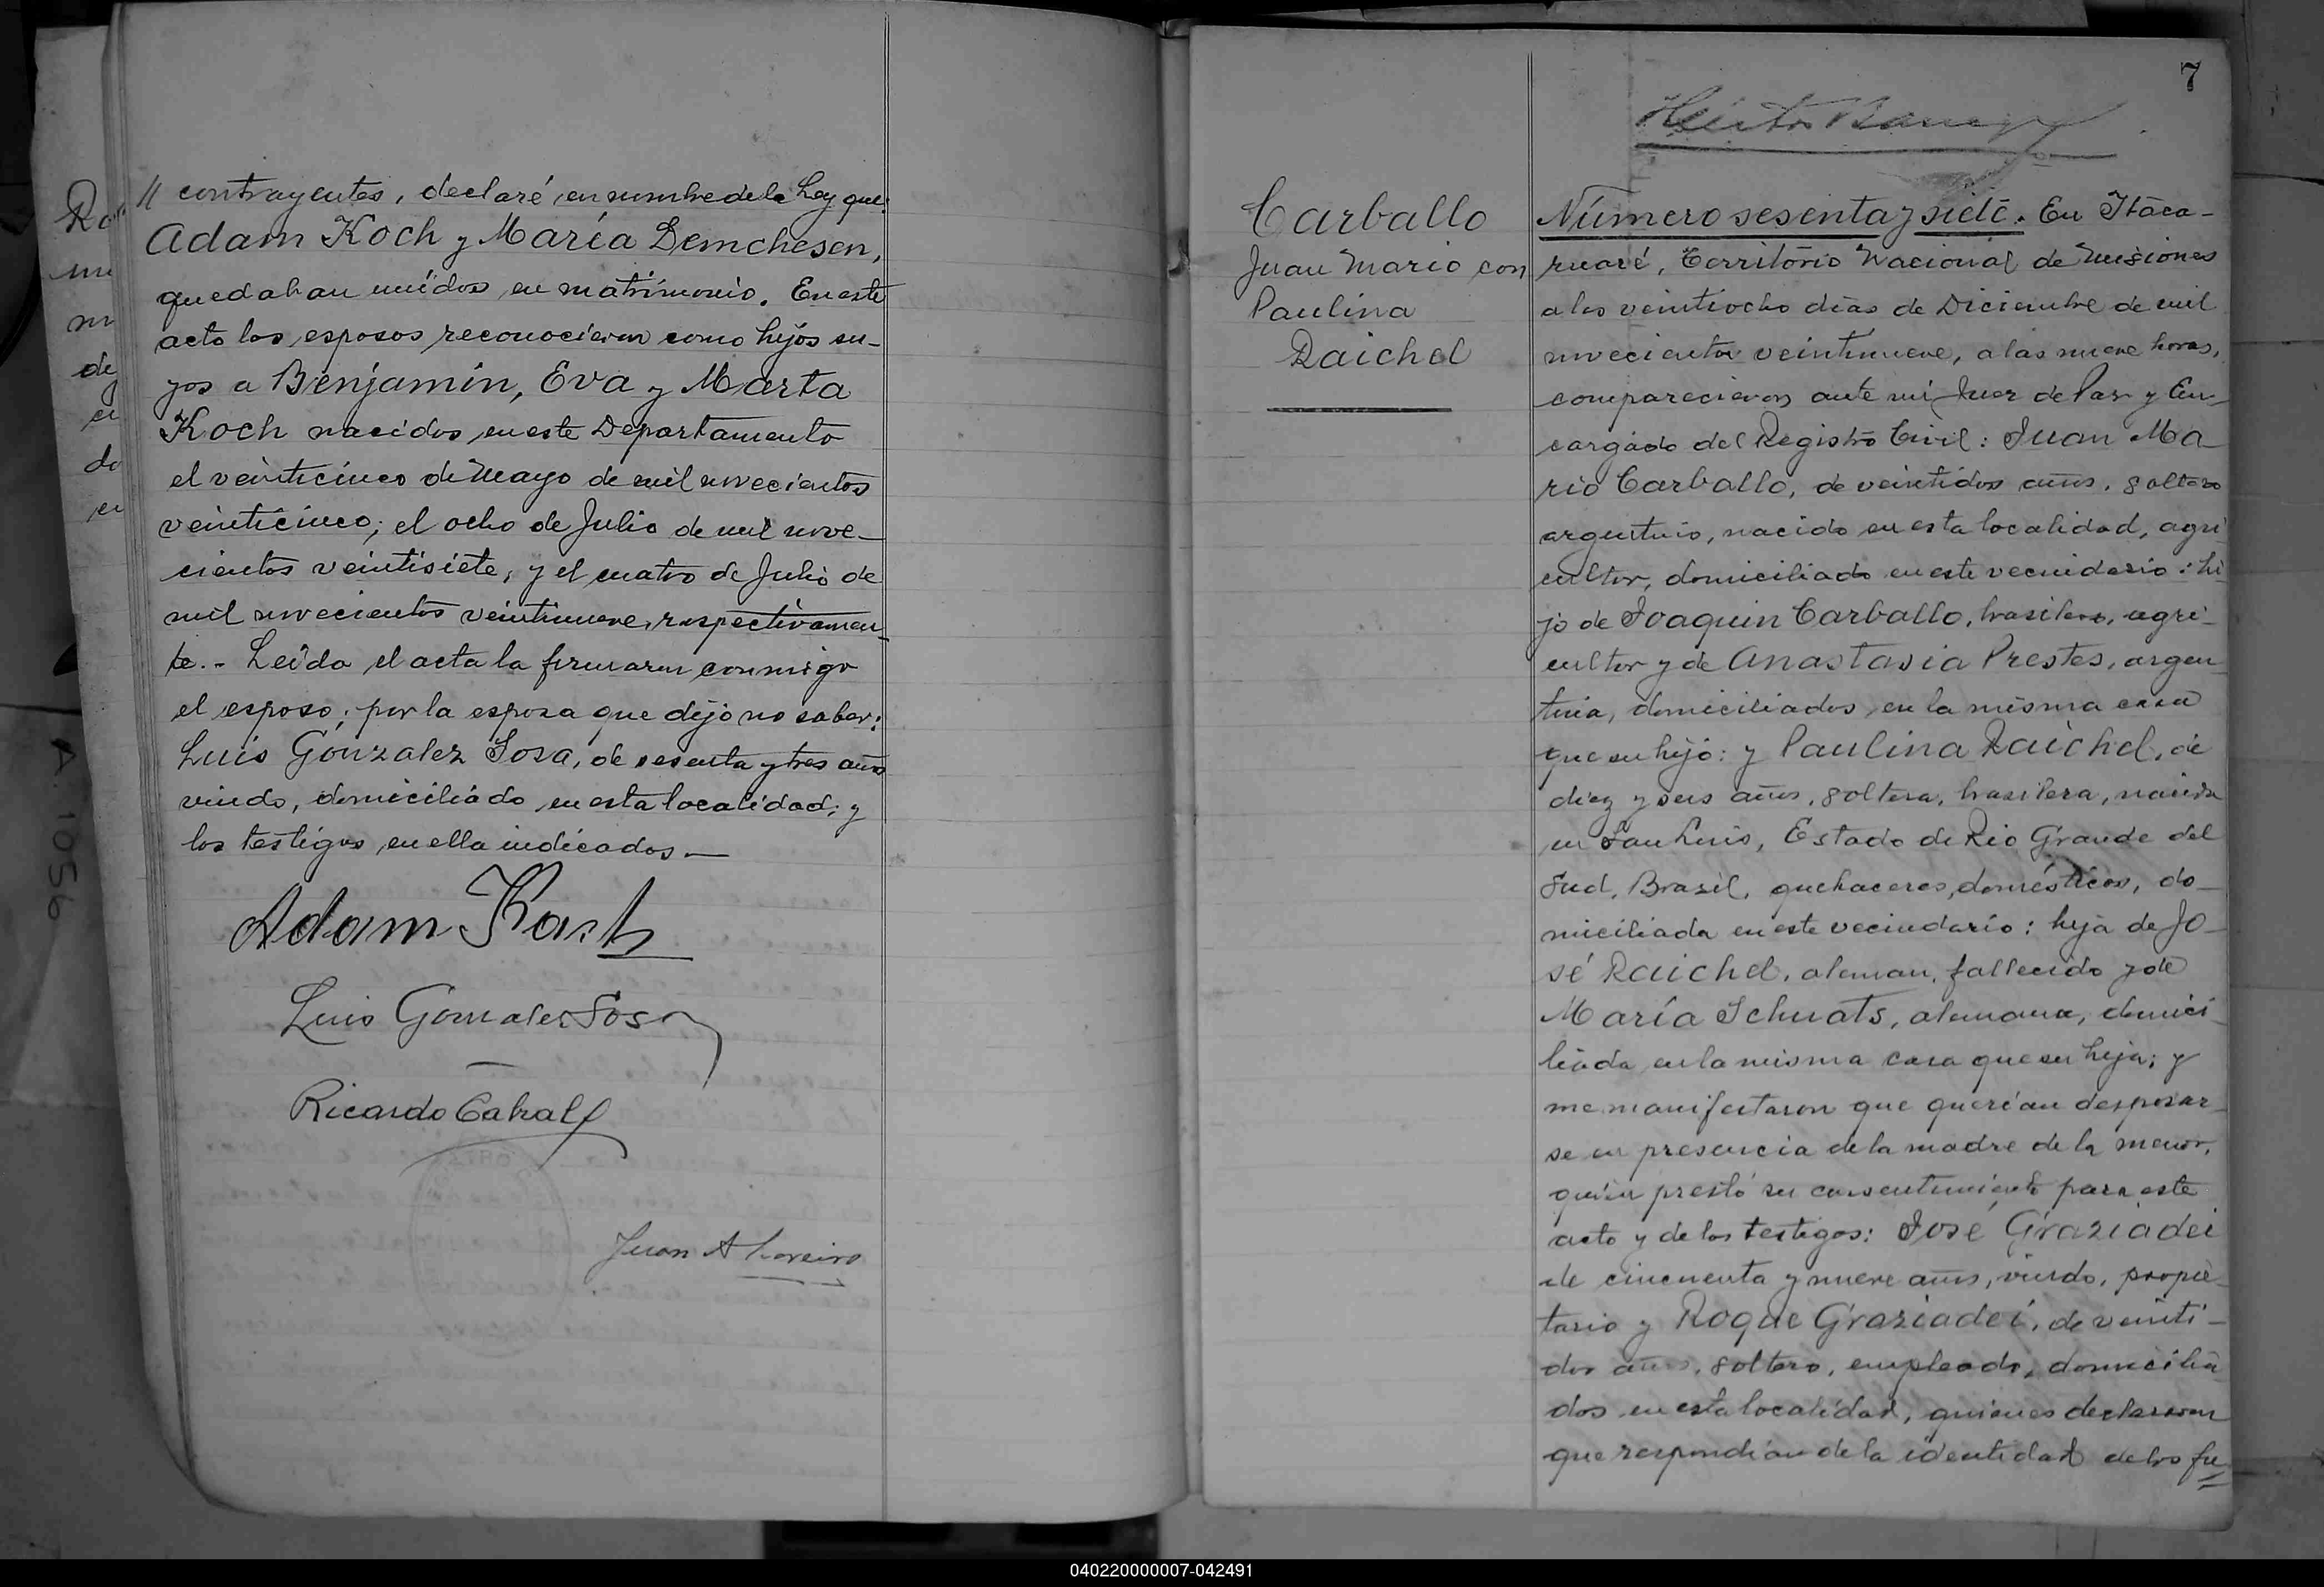 Ro
de
do
A. 1056
// contrayentes, declaré, en nombre de la Ley que:
Adam Koch y María Demchesen,
quedaban unidos en matrimonio. En este
acto los esposos reconocieron como hijos su-
yos a Benjamín, Eva y Marta
Koch nacidos en este Departamento
el veinticinco de Mayo de mil novecientos
veinticinco; el ocho de Julio de mil nove-
cientos veintisiete, y el cuatro de Julio de
mil novecientos veintinueve, respectivamen-
te.- Leída el acta la firmaron conmigo
el esposo; por la esposa que dijo no saber:
Luis Gonzalez Sosa, de sesenta y tres años
viudo, domiciliado en esta localidad; y
los testigos en ella indicados.—
Adam Koch
Luis Gonzalez Sosa
Ricardo Cabral
Juan A Loreiro
7
Carballo
Juan Mario con
Paulina
Raichel
Número sesenta y siete. En Itaca-
ruaré, Territorio Nacional de Misiones
a los veintiocho días de Diciembre de mil
novecientos veintinueve, a las nueve horas,
comparecieron ante mí Juez de Paz y En-
cargado del Registro Civil: Juan Ma-
rio Carballo, de veintidos años, soltero
argentino, nacido en esta localidad, agri
cultor, domiciliado en este vecindario: hi-
jo de Joaquin Carballo, brasilero, agri-
cultor y de Anastasia Prestes, argen-
tina, domiciliados en la misma casa
que su hijo: y Paulina Raichel, de
diez y seis años, soltera, brasilera, nacida
en San Luis, Estado de Rio Grande del
Sud, Brasil, quehaceres domésticos, do-
miciliada en este vecindario: hija de Jo-
sé Raichel, aleman, fallecido y de
María Schuats, alemana, domici-
liada en la misma casa que su hija; y
me manifestaron que querían desposar-
se en presencia de la madre de la menor,
quien prestó su consentimiento para este
acto y de los testigos: José Graziadei
de cincuenta y nueve años, viudo, propie-
tario y Roque Graziadei, de veinti-
dos años, soltero, empleado, domicilia
dos en esta localidad, quienes declararon
que respondían de la identidad de los fu
040220000007-042491